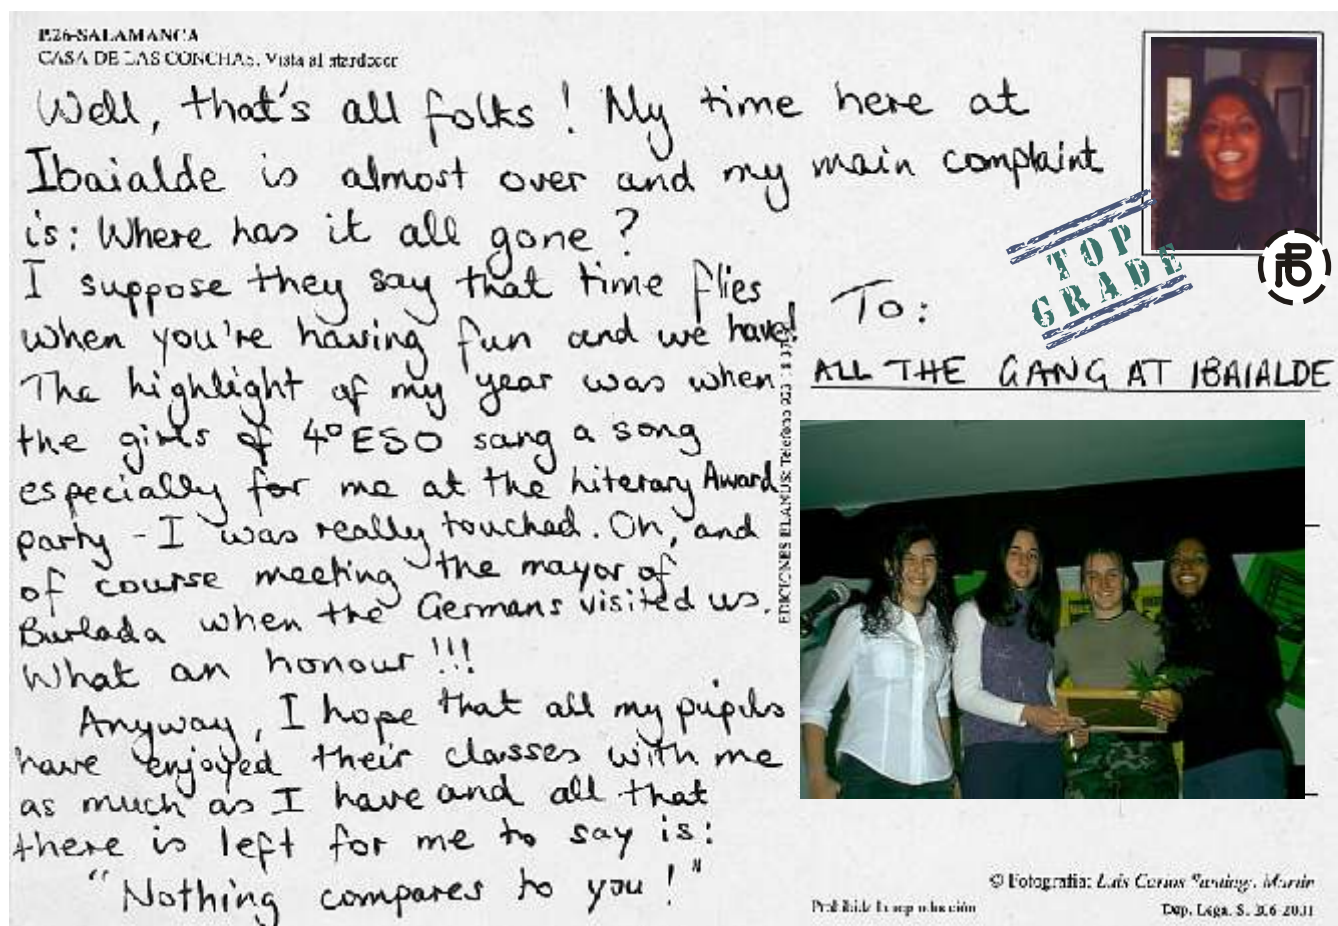 P.26-SALAMANCA
CASA DE LAS CONCHAS. Vista al atardecer
Well, that's all folks! My time here at
Ibaialde is almost over and my main complaint
is: Where has it all gone?
I suppose they say that time flies
when you're having fun and we have!
The highlight of my year was when
the girls of 4º ESO sang a song
especially for me at the Literary Award
party - I was really touched. Oh, and
of course meeting the mayor of
Burlada when the Germans visited us.
What an honour!!!
Anyway, I hope that all my pupils
have enjoyed their classes with me
as much as I have and all that
there is left for me to say is:
"Nothing compares to you!"
TOP
GRADE
To:
ALL THE GANG AT IBAIALDE
EDICIONES
© Fotografía: Luis Carlos
Dep. Lega. S.